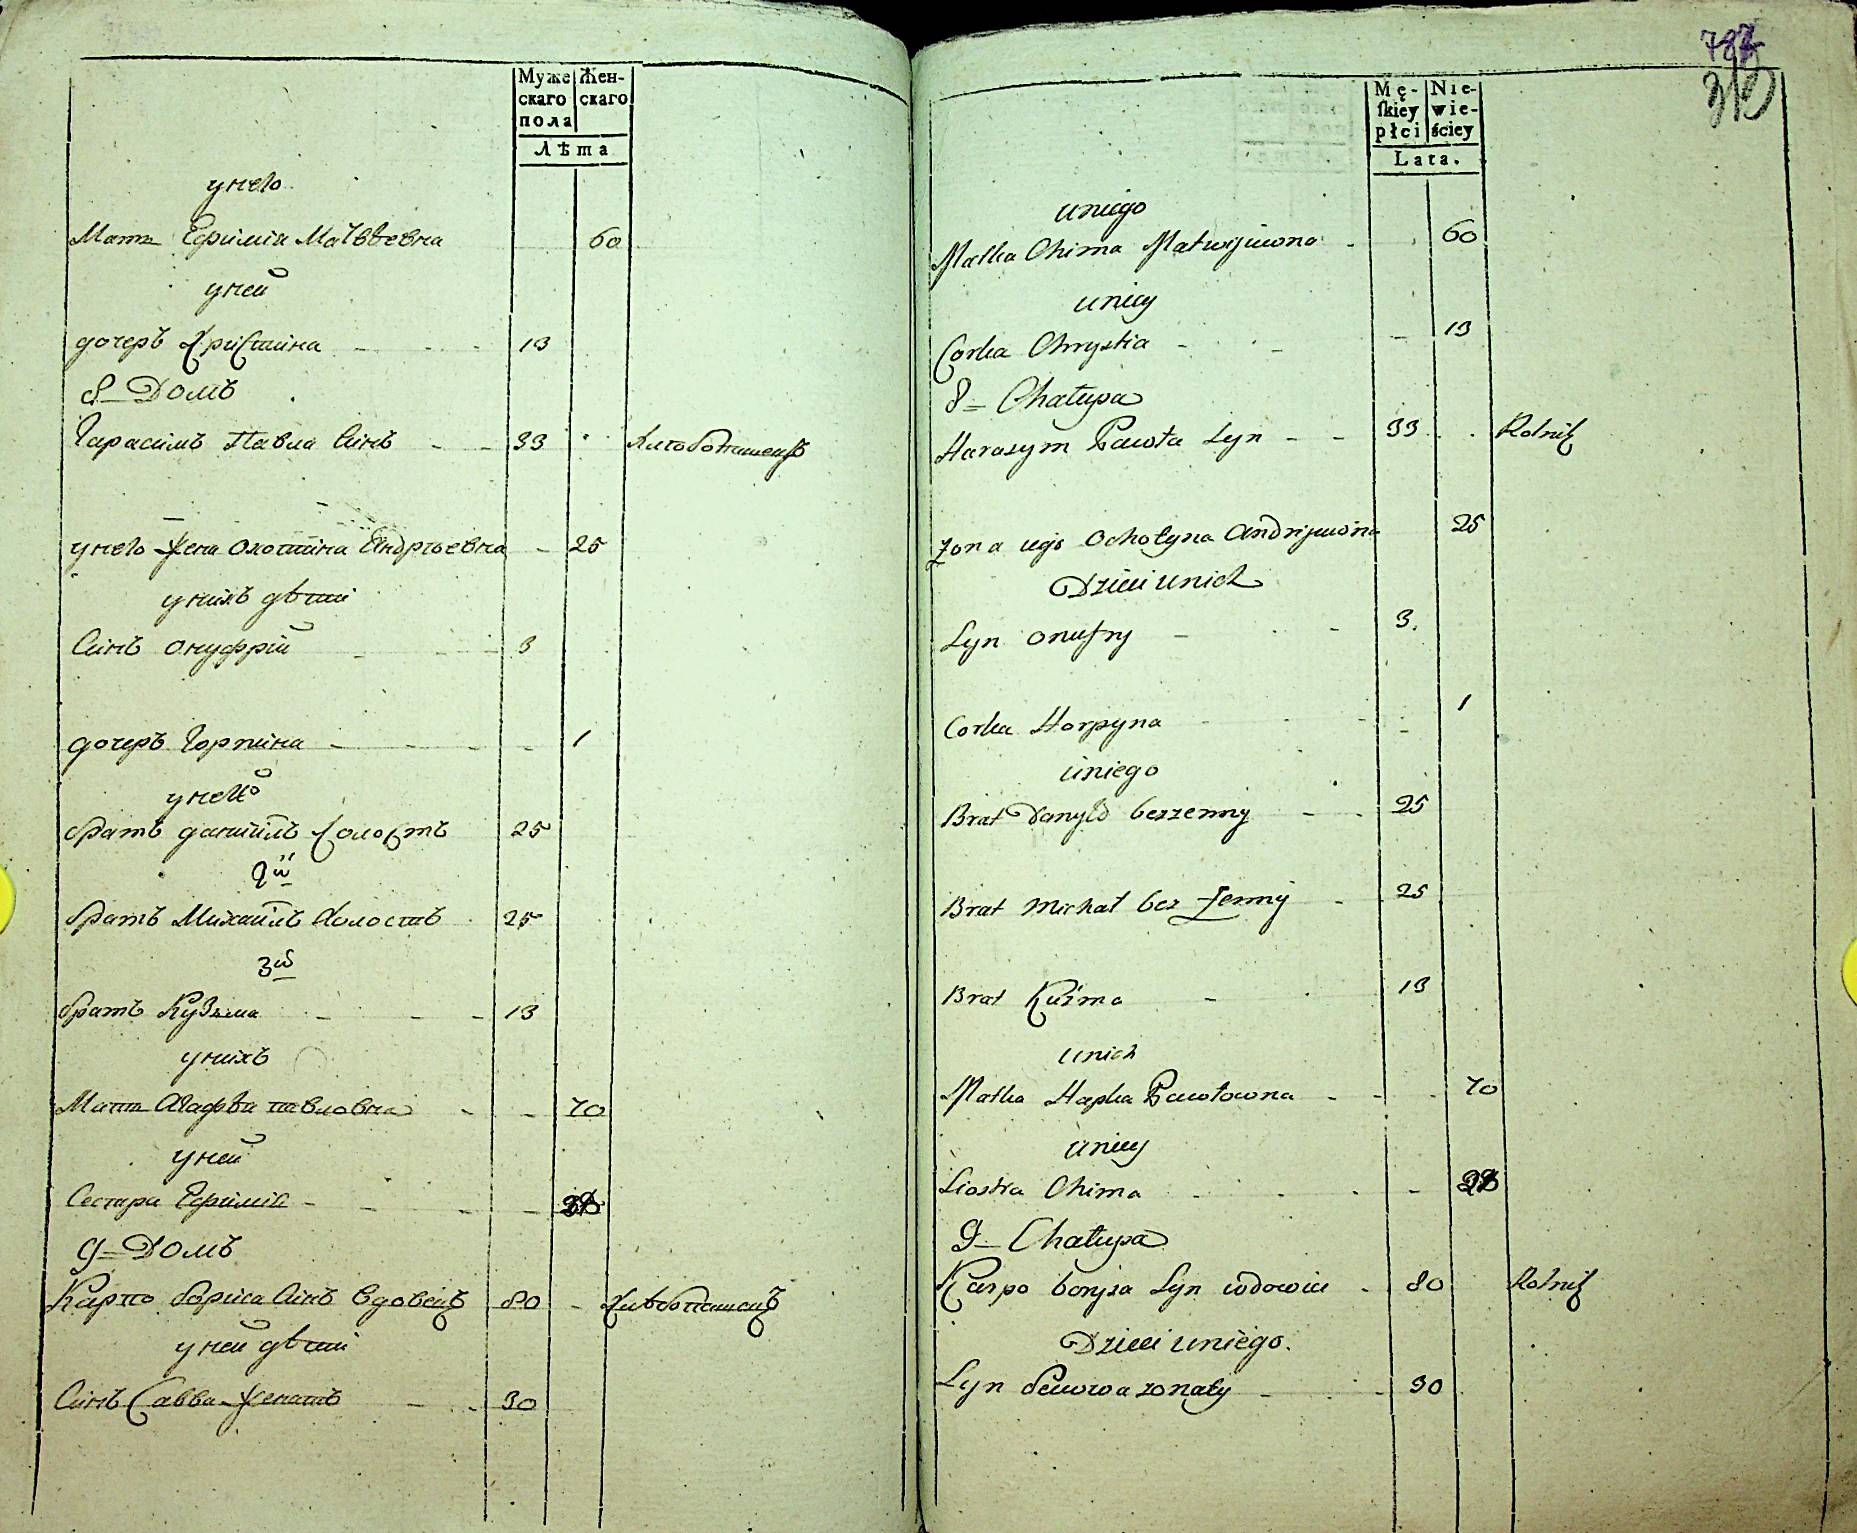 Муже Жен-
скаго скаго
пола
Лѣта
унего
Мать Ефимія Матвѣевна 60
уней
дочеръ Христина 13
8 Домъ
Гарасимъ Павла Синъ 33 Хлѣбопашецъ
унего жена Охотина Андрѣевна 25
унихъ дѣти
Синъ Онуфрій 3
дочеръ Горпина 1
унего
братъ даниилъ холостъ 25
2й
братъ Михаилъ холостъ 25
3й
братъ Кузьма 13
унихъ
Мать Агафѣя павловна 70
уней
Сестра Ефимія
9 Домъ
Карпо бориса Синъ вдовецъ 80 хлѣбопашецъ
уней дѣти
Синъ Савва женатъ 30
787
Mę- Nie-
ſkiey wie-
płci ściey
Lata.
uniego
Matka Chima Matwijiwona 60
uniey
Corka Chrystia 13
8 Chałupa
Harasym Pawła Syn 33 Rolnik
żona iego Ochotyna Andrijwona 25
Dzieci unich
Syn Onufry 3
Corka Horpyna 1
uniego
Brat Danyło bezzenny 25
Brat Michał bez żenny 25
Brat Kuźma 13
unich
Matka Hapka Pawłowna 70
uniey
Siostra Chima
9 Chałupa
Karpo borysa Syn wdowiec 80 Rolnik
Dzieci uniego.
Syn Sawwa zonaty 30